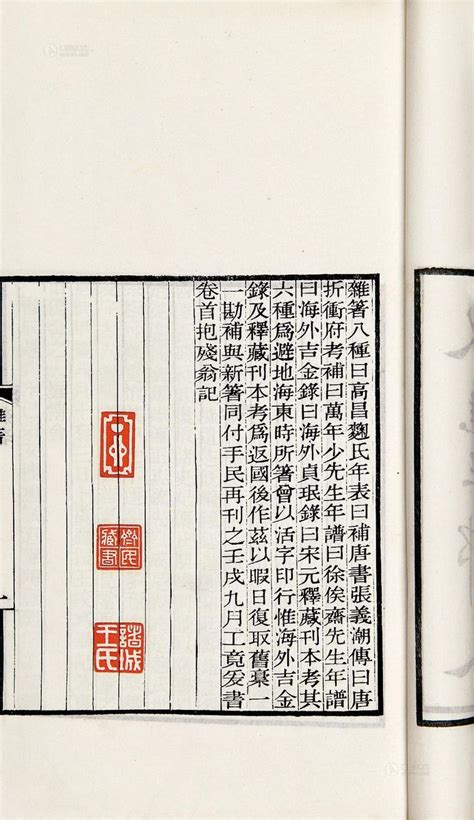 雜箸八種曰高昌麴氏年表曰補唐書張義潮傳曰唐
折衝府考補曰萬年少先生年譜曰徐俟齋先生年譜
曰海外吉金錄曰海外貞珉錄曰宋元釋藏刊本考其
六種爲避地海東時所箸曾以活字印行惟海外吉金
錄及釋藏刊本考爲返國後作茲以暇日復取舊稾一
一勘補與新箸同付手民再刊之壬戌九月工竟爰書
卷首抱殘翁記
諸城
王氏